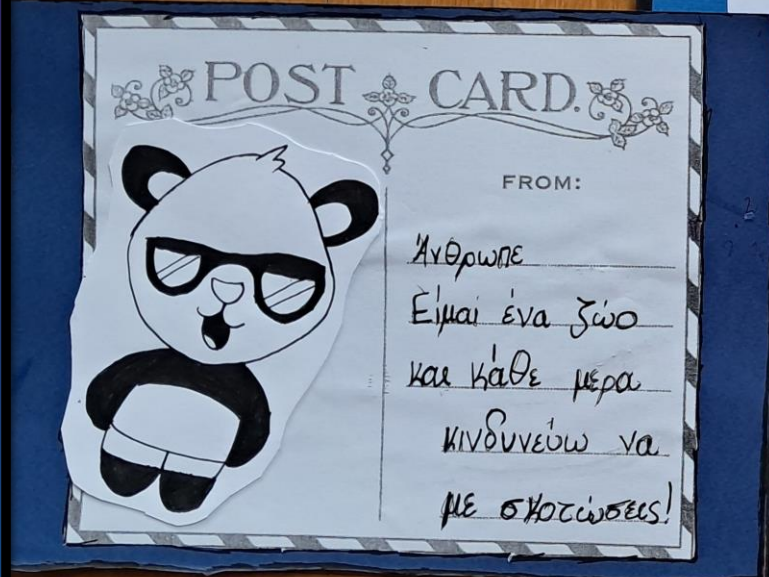 POST CARD.
FROM:
Άνθρωπε
Είμαι ένα ζώο
και κάθε μέρα
κινδυνεύω να
με σκοτώσεις!